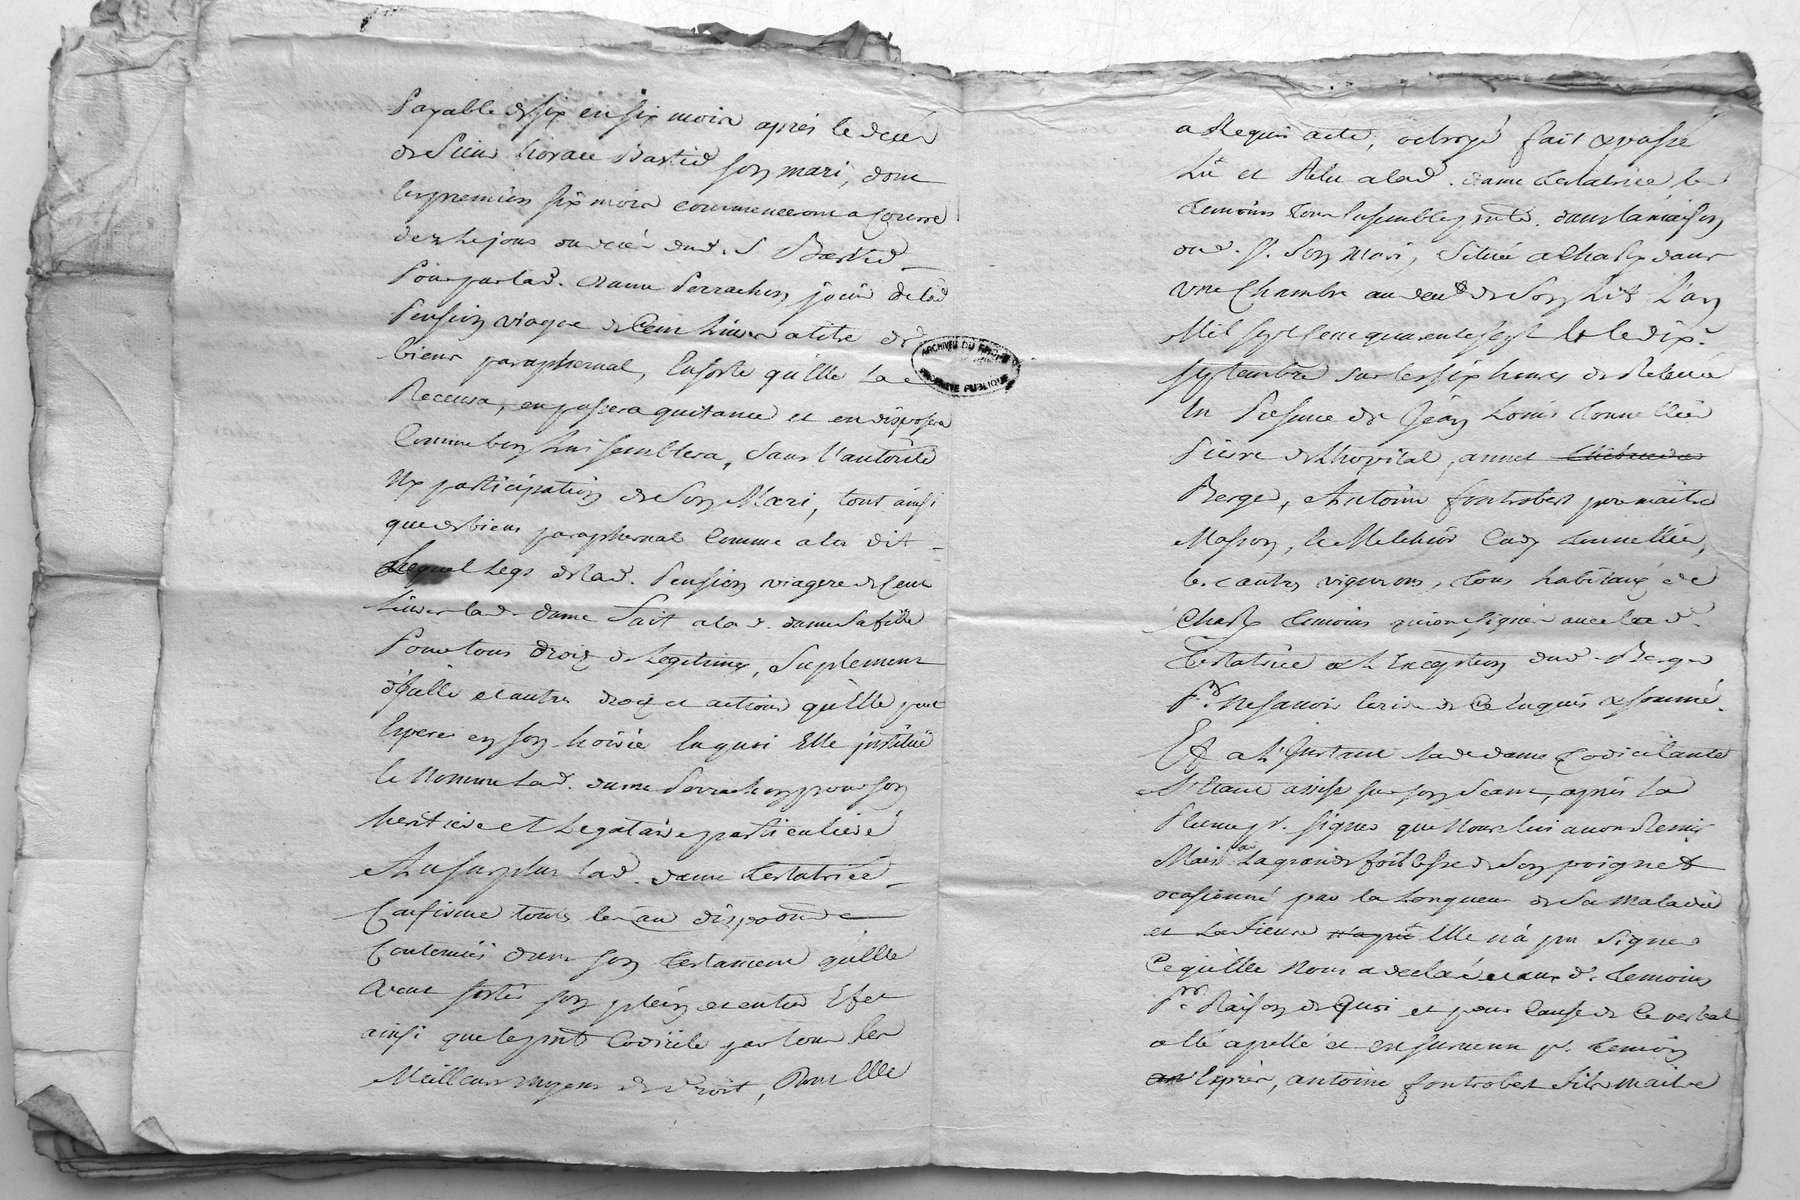 Payable de six en six mois après le decès
de Sieur horace Bastid son mari, dont
les premiers six mois commenceront a courre
dez le jour du decès dud. S. Bastid
Pour par lad. dame Perrachon jouir de lad
Pension viagere de Cent Livres a titre de
biens paraphernal, Ensorte qu'Elle La
Recevra, en passera quitance et en disposera
Comme bon Lui semblera, Sans l'autorité
Ny participation de Son Mari, tout ainsi
que de biens paraphernal Comme a la dit
Lequel Legs de lad. Pension viagere de Cent
Livres lad. dame fait a lad. dame Sa fille
Pour tous droiz de Legitimes, Suplement
d'icelle et autres droiz et actions qu'Elle peut
Esperer en son hoirie En quoi Elle jnstitüe
Et Nomme Lad. dame Perrachon pour son
heritiere et Legataire particuliere
Au surplus Lad. dame testatrice
Confirme toutes les
Contenües dans son testament qu'Elle
Veut sortir son plein et entier Efet
ainsi que le pnt Codicile par tous les
Meilleurs moyens de Droit, Dont Elle
a Requis acte, octroyé fait & passé
Lû et Relu a lad. dame testatrice les
temoins tous Ensembles pnts. dans la maison
dud. S. Son Mari, Située a Chasly dans
Une Chambre au devt de Son Lit L'an
Mil sept cent quarente sept Et le dix
septembre sur les six heures de Relevée
En Presence de Jean Louis tonnellier
Pierre de Lhopital, annet
Berger, Antoine fontrobert pere maitre
Masson, Et Melchior Cady tonnellier,
les autres vignerons, tous habitans de
Chasly temoins qui ont Signés avec lad.
Testatrice a L'Exception dud. Berger
Pr. Ne savoir Ecrire de Ce Enquis & sommé.
Et a L'Jnstant Lad. dame Codicilante
S'etant assise sur son Seant, après La
Plume pr. signer que Nous lui avons Remis
Mais La grande foiblesse de Son poignet
ocasionné par la Longueur de Sa Maladie
et La fievre Elle n'a pu Signer
Ce qu'Elle Nous a declaré et aux ds. temoins
Pr. Raison de Quoi et pour Cause de Ce verbal
a eté apellé et est survenu pr. temoin
Exprès, antoine fontrobert fils maitre
ARCHIVES DU RHONE
PROPRIETE PUBLIQUE